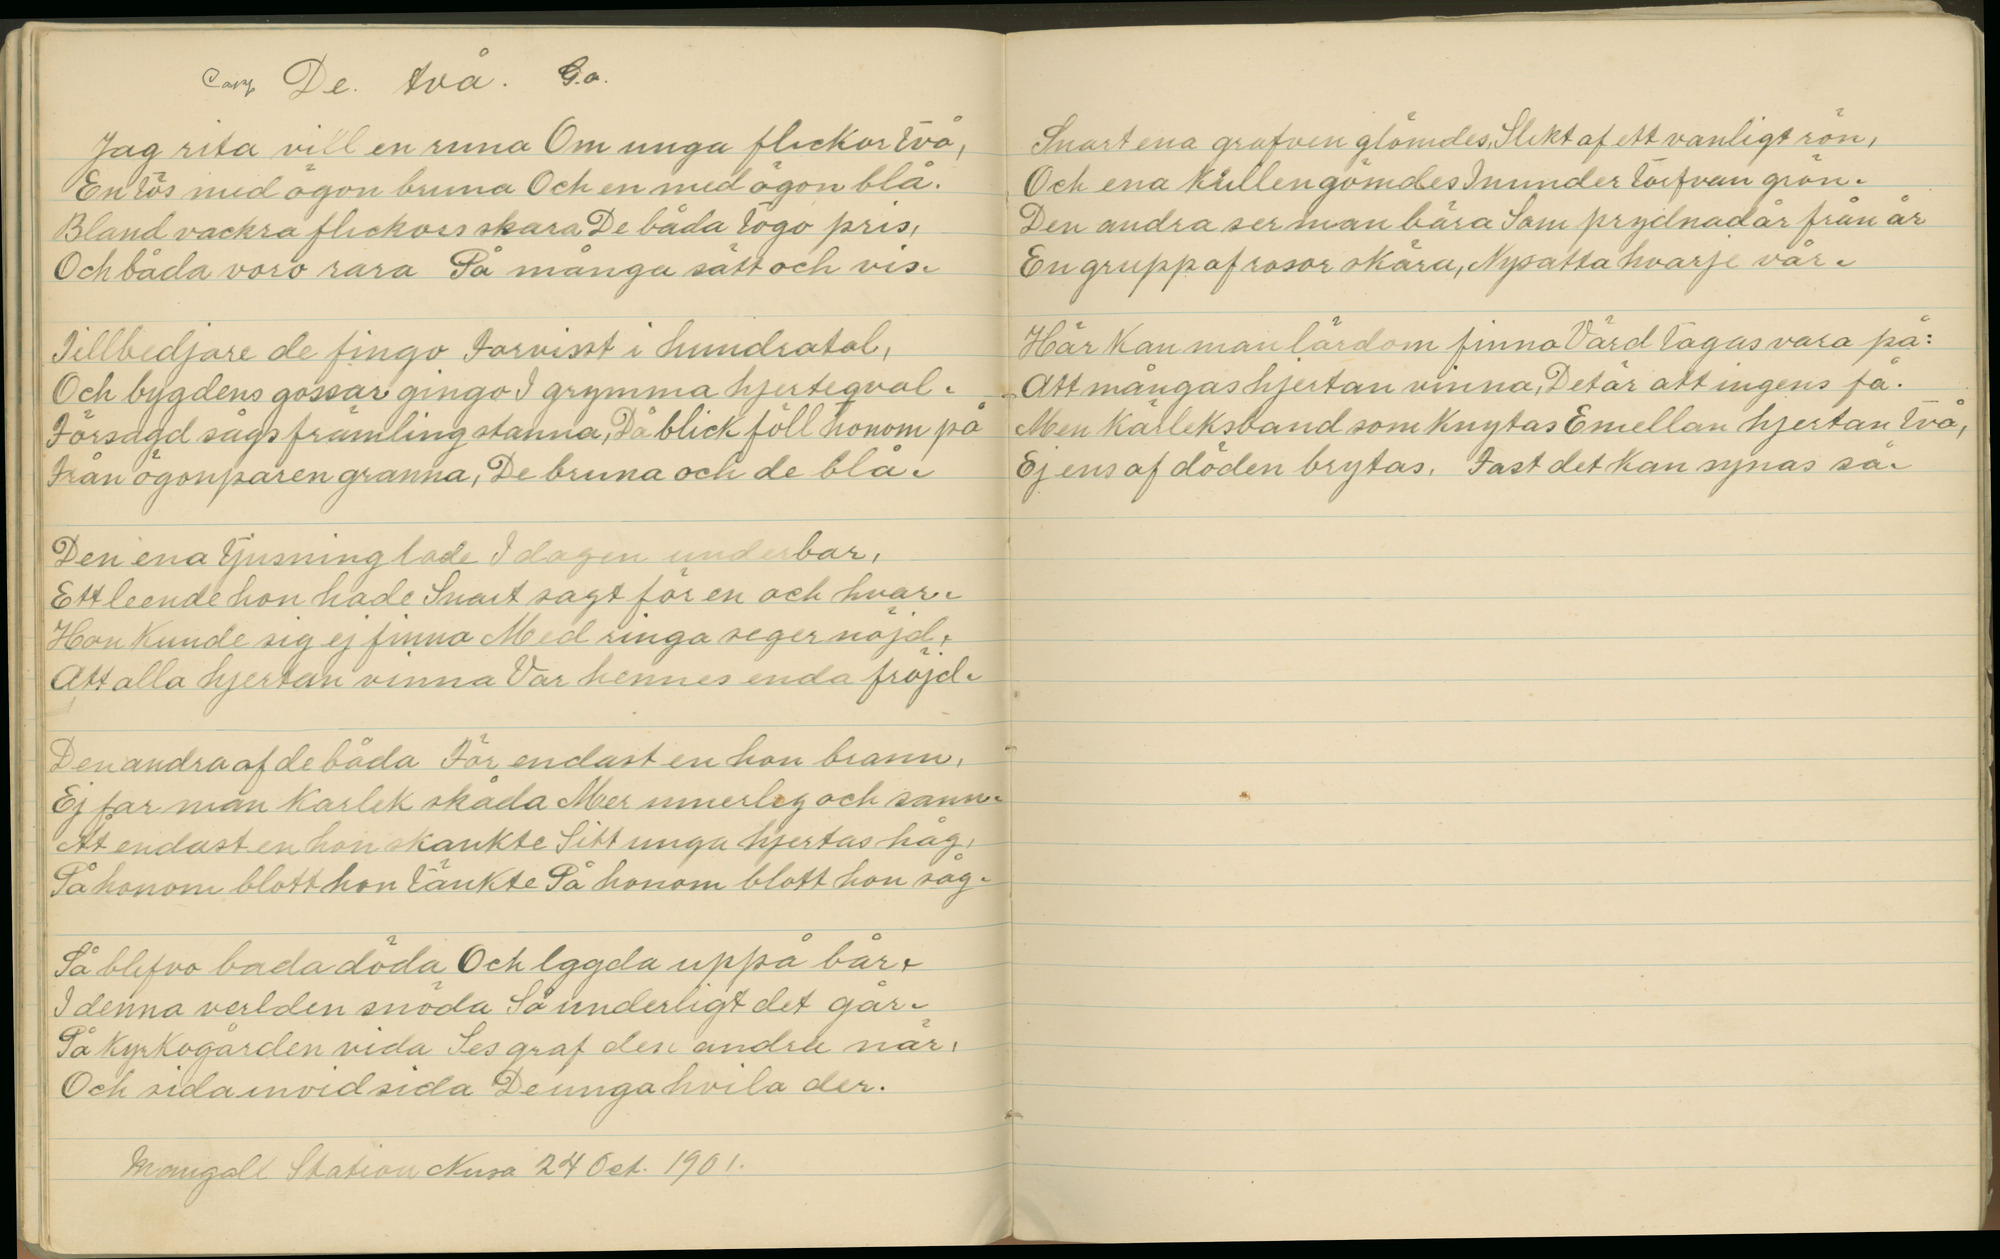 Copy De. två. G.a.
Jag rita vill en runa Om unga flickor två,
En tös med ögon bruna Och en med ögon blå.
Bland vackra flickors skara De båda togo pris,
Och båda voro rara På många sätt och vis.
Tillbedjare de fingo Forvisst i hundratal,
Och bygdens gossar gingo I grymma hjerteqval.
Försagd sågs främling stanna, Då blick föll honom på
Från ögonparen granna, De bruna och de blå.
Den ena tjusning lade I dagen underbar,
Ett leende hon hade Snart sagt för en och hvar.
Hon kunde sig ej finna Med ringa seger nöjd,
Att alla hjertan vinna Var hennes enda fröjd.
Den andra af de båda För endast en hon brann,
Ej far man karlek skåda Mer innerleg och sann.
Att endast en hon skankte Sitt unga hjertas håg,
På honom blott hon tänkte På honom blott hon såg.
Så blefvo bada döda Och lggda uppå bår,
I denna verlden snöda Så underligt det går.
På kyrkogården vida Ses graf den andra när,
Och sida invid sida De unga hvila der.
Station Nusa 24 Oct. 1901.
Snart ena grafven glömdes, Slikt af ett vanligt rön,
Och ena kullen gömdes Inunder torfvan grön.
Den andra ser man bära Som prydnad år från år
En grupp af rosor skära, Nysatta hvarje vår.
Här kan man lärdom finna Värd tagas vara på:
Att mångas hjertan vinna, Det är att ingens få.
Men Kärleksband som knytas Emellan hjertan två,
Ej ens af döden brytas, Fast det kan synas så.